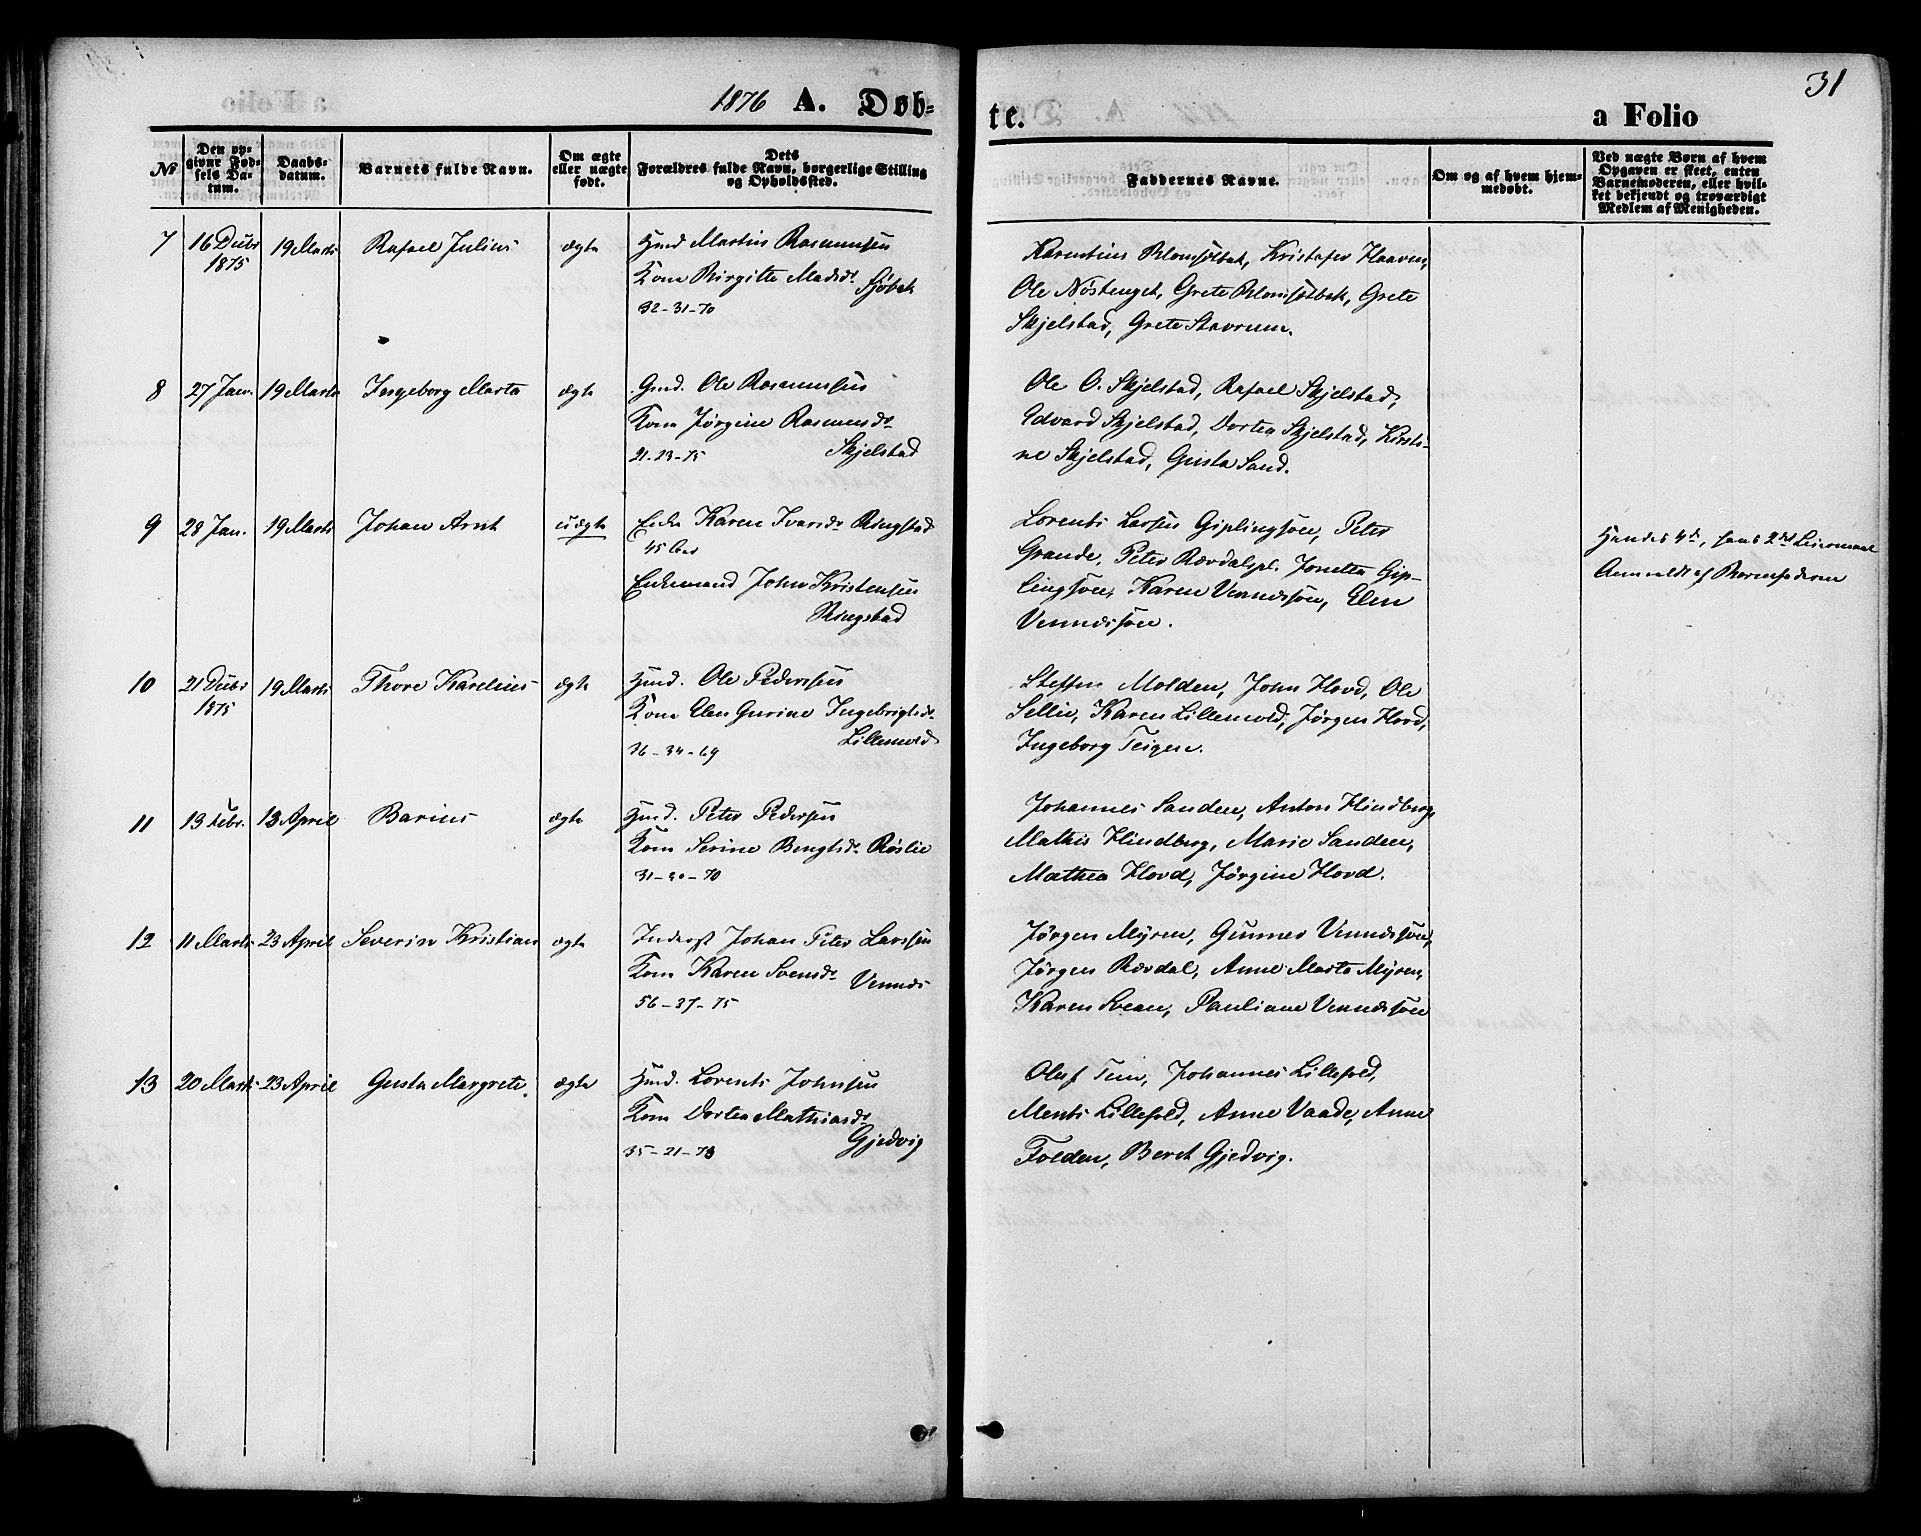 1876 A. Døb-
te. a Folio 31
No
Den op-
givne Fød-
sels Da-
tum.
Daabs-
datum.
Barnets fulde Navn.
Om ægte
eller uægte
født.
Dets
Forældres fulde Navn, borgerlige Stilling
og Opholdssted.
Faddernes Navne.
Om og af hvem hjem-
medøbt.
Ved uægte Børn af hvem
Opgaven er skeet, enten
Barnemoderen, eller hvil-
ket bekjendt og troværdigt
Medlem af Menigheden.
7 16 Decbr 19 Marts Rafael Julius ægte Hmd Martin Rasmussen
1875 Kone Birgitte Madsdr Sjøbak
32-31-70
Karentius Blomsøtbak, Kristofer Haaven,
Ole Nøstenget, Grete Blomsøtbak, Grete
Skjelstad, Grete Stavrum.
8 27 Jan. 19 Marts Ingeborg Marta ægte Gmd. Ole Rasmussen
Kone Jørgine Rasmusdr
21-23-75 Skjelstad
Ole O. Skjelstad, Rafael Skjelstad,
Edvard Skjelstad, Dortea Skjelstad, Kirsti-
ne Skjelstad, Gusta Sand.
9 28 Jan. 19 Marts Johan Arnt uægte Enke Karen Ivarsdr Ringstad
45 Aar
Enkemand John Kristensen
Ringstad
Lorents Larsen Giplingsøen, Peter
Grande, Peter Rævdalspl. Jonetta Gip-
lingsøen, Karen Vennesøen, Elen
Vennessøen.
Hendes 4de, hans 2det Leiermaal
Anmeldt af Barnefaderen
10 21 Decbr 19 Marts Thore Karelius ægte Hmd. Ole Pedersen
1875 Kone Elen Gurine Ingebrigtsdr
36-34-69 Lillemold
Steffen Molden, John Hovd, Ole
Sellie, Karen Lillemold, Jørgen Hovd,
Ingeborg Teigen.
11 13 Febr. 13 April Barius ægte Hmd. Peter Pedersen
Kone Serine Bengtsdr Røslie
31-30-70
Johannes Sanden, Anton Hindberg,
Mathis Hindberg, Marie Sanden,
Mathea Hovd, Jørgine Hovd.
12 11 Marts 23 April Severin Kristian ægte Inderst Johan Peter Larssen
Kone Karen Svensdr Vennes
56-37-75
Jørgen Myren, Gunnes Vennessøen,
Jørgen Rævdal, Anne Marta Myren,
Karen Svean, Pauliane Vennessøen
13 20 Marts 23 April Gusta Margrete. ægte Hmd. Lorents Johnsen
Kone Dortea Mathiasdr
35-21-73 Gjedvig
Oluf Tun, Johannes Lillefold,
Ments Lillefold, Anne Vaade, Anne
Folden, Beret Gjedvig.